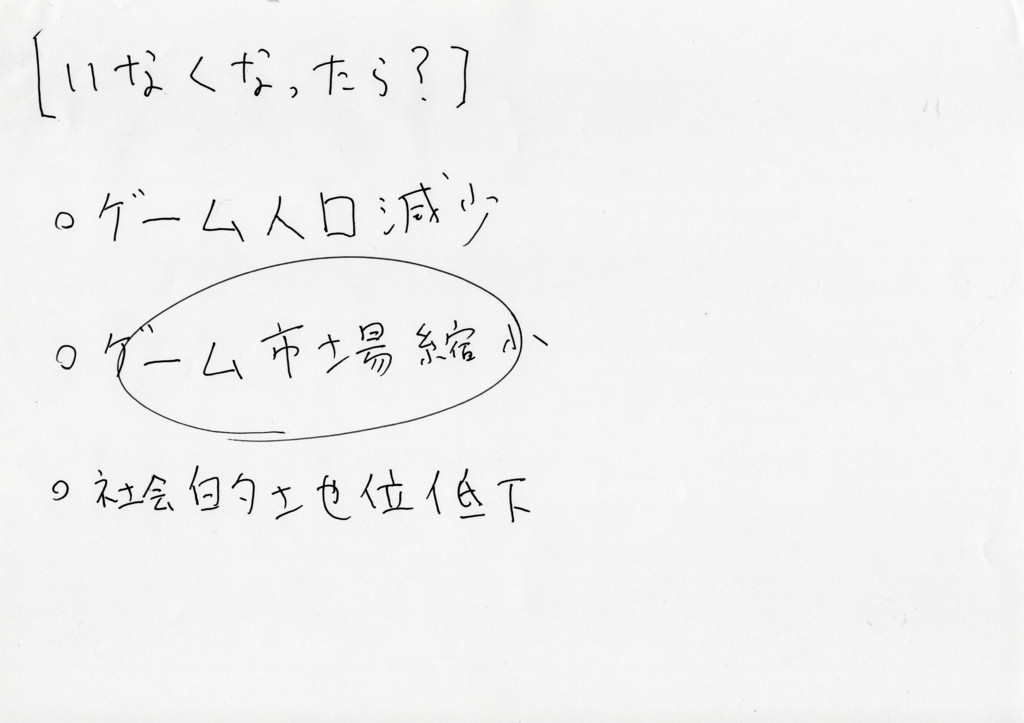 [いなくなったら?]
○ ゲーム人口減少
○ ゲーム市場縮小
○ 社会的地位低下